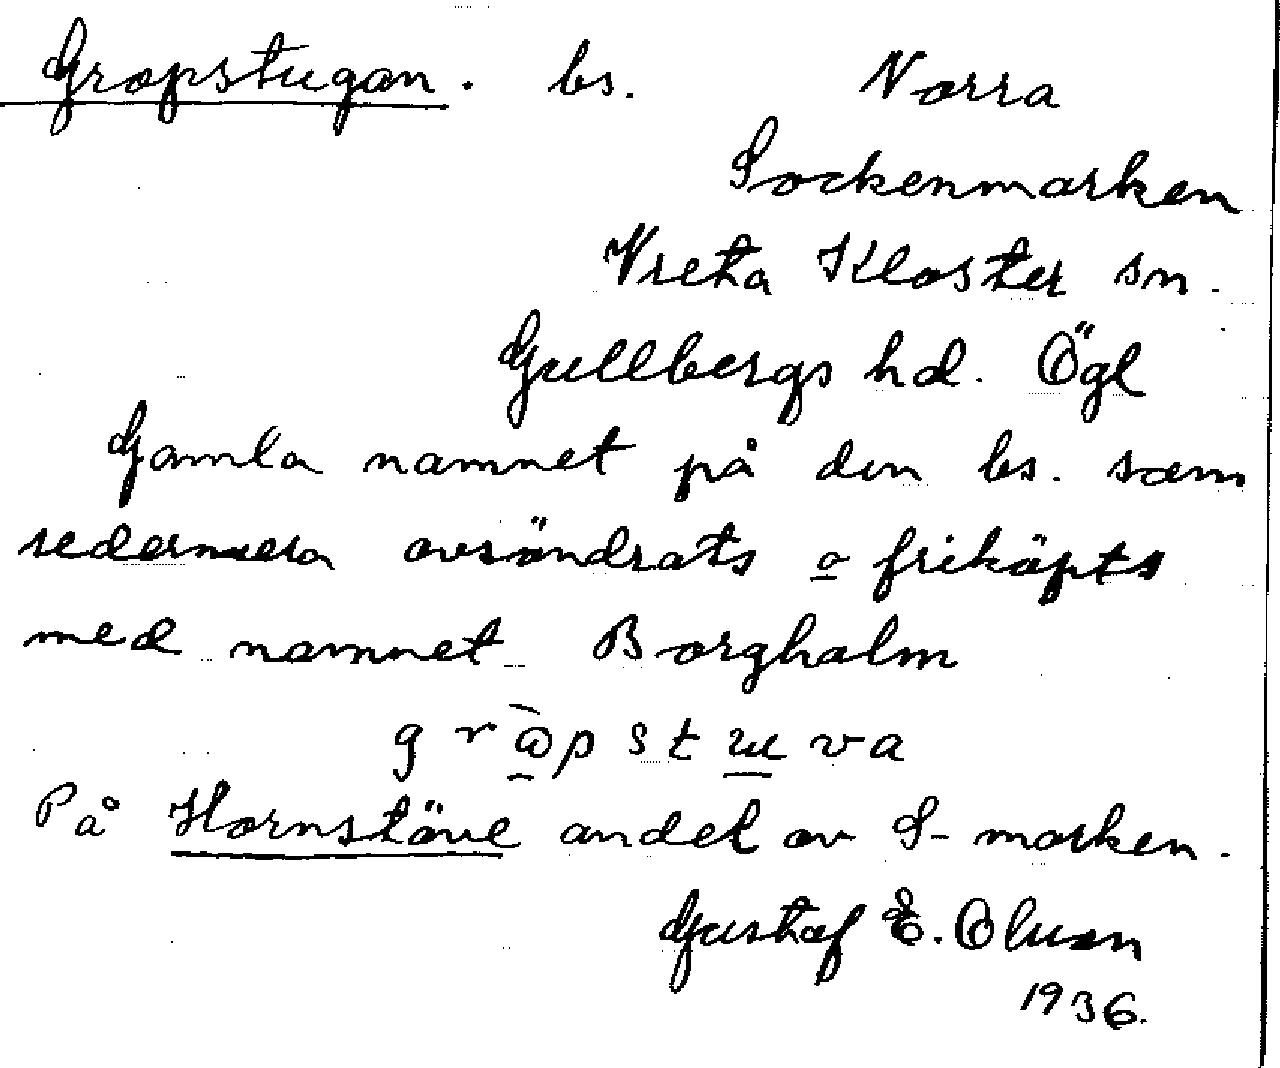 Gropstugan. bs. Norra
Sockenmarken
Vreta Kloster sn.
Gullbergs hd. Ögl
Gamla namnet på den bs. som
sedermera avsöndrats o friköpts
med namnet Borghalm
På Hornstöve andel av S-marken.
Gustaf E. Olsson
1936.